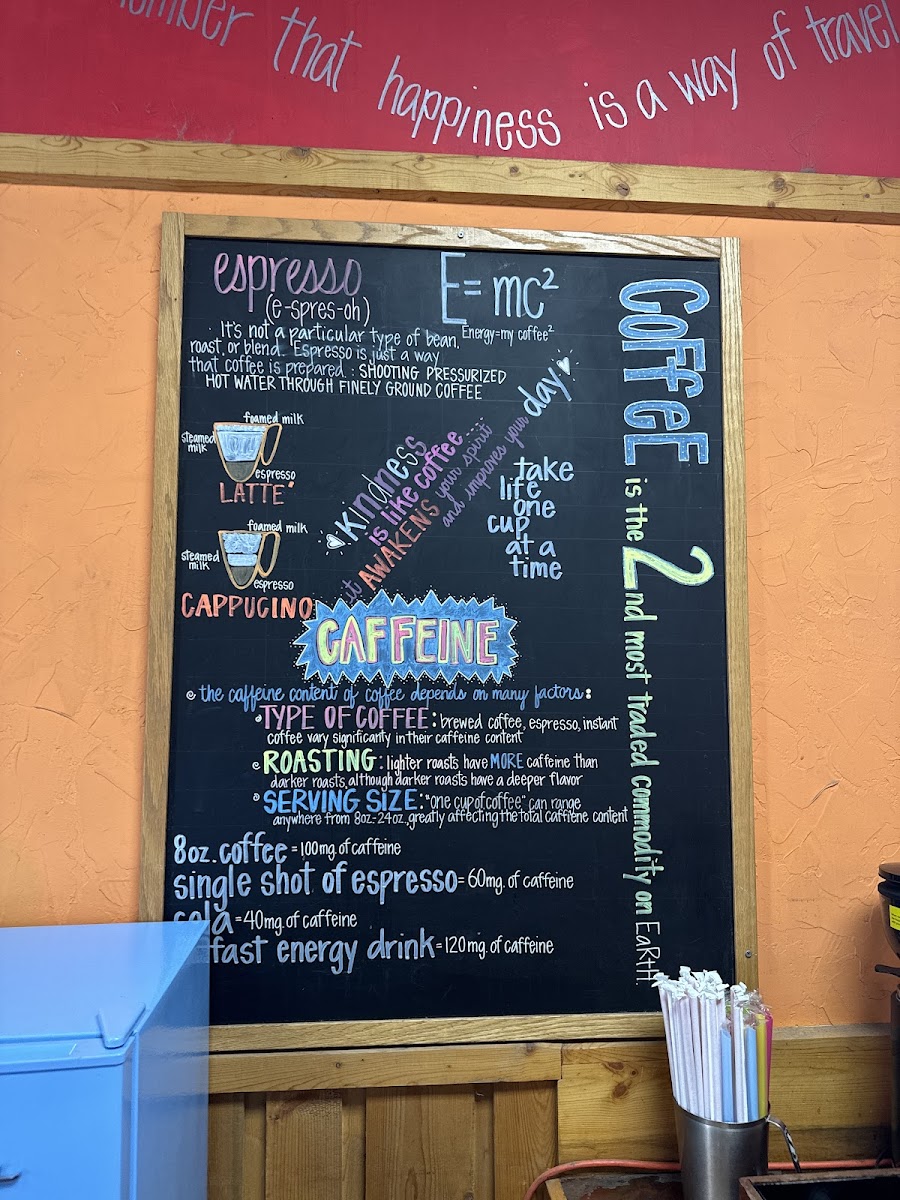 that happiness is a way of travel
espresso
(e-spres-oh)
It's not a particular type of bean,
roast, or blend. Espresso is just a way
that coffee is prepared.: SHOOTING PRESSURIZED
HOT WATER THROUGH FINELY GROUND COFFEE
E=mc²
Energy=my coffee²
foamed milk
steamed
milk
espresso
LATTE
foamed milk
steamed
milk
espresso
CAPPUCINO
Kindness
is like coffee
it AWAKENS your spirit
and improves your day
take
life
one
cup
at a
time
COFFEE is the 2nd most traded commodity on EaRtH.
CAFFEINE
the caffeine content of coffee depends on many factors:
TYPE OF COFFEE: brewed coffee, espresso, instant
coffee vary significantly in their caffeine content
ROASTING: lighter roasts have MORE caffeine than
darker roasts, although darker roasts have a deeper flavor
SERVING SIZE: "one cup of coffee" can range
anywhere from 8oz-24oz., greatly affecting the total caffiene content
8oz. coffee = 100mg. of caffeine
single shot of espresso = 60mg. of caffeine
cola = 40mg. of caffeine
fast energy drink = 120mg. of caffeine